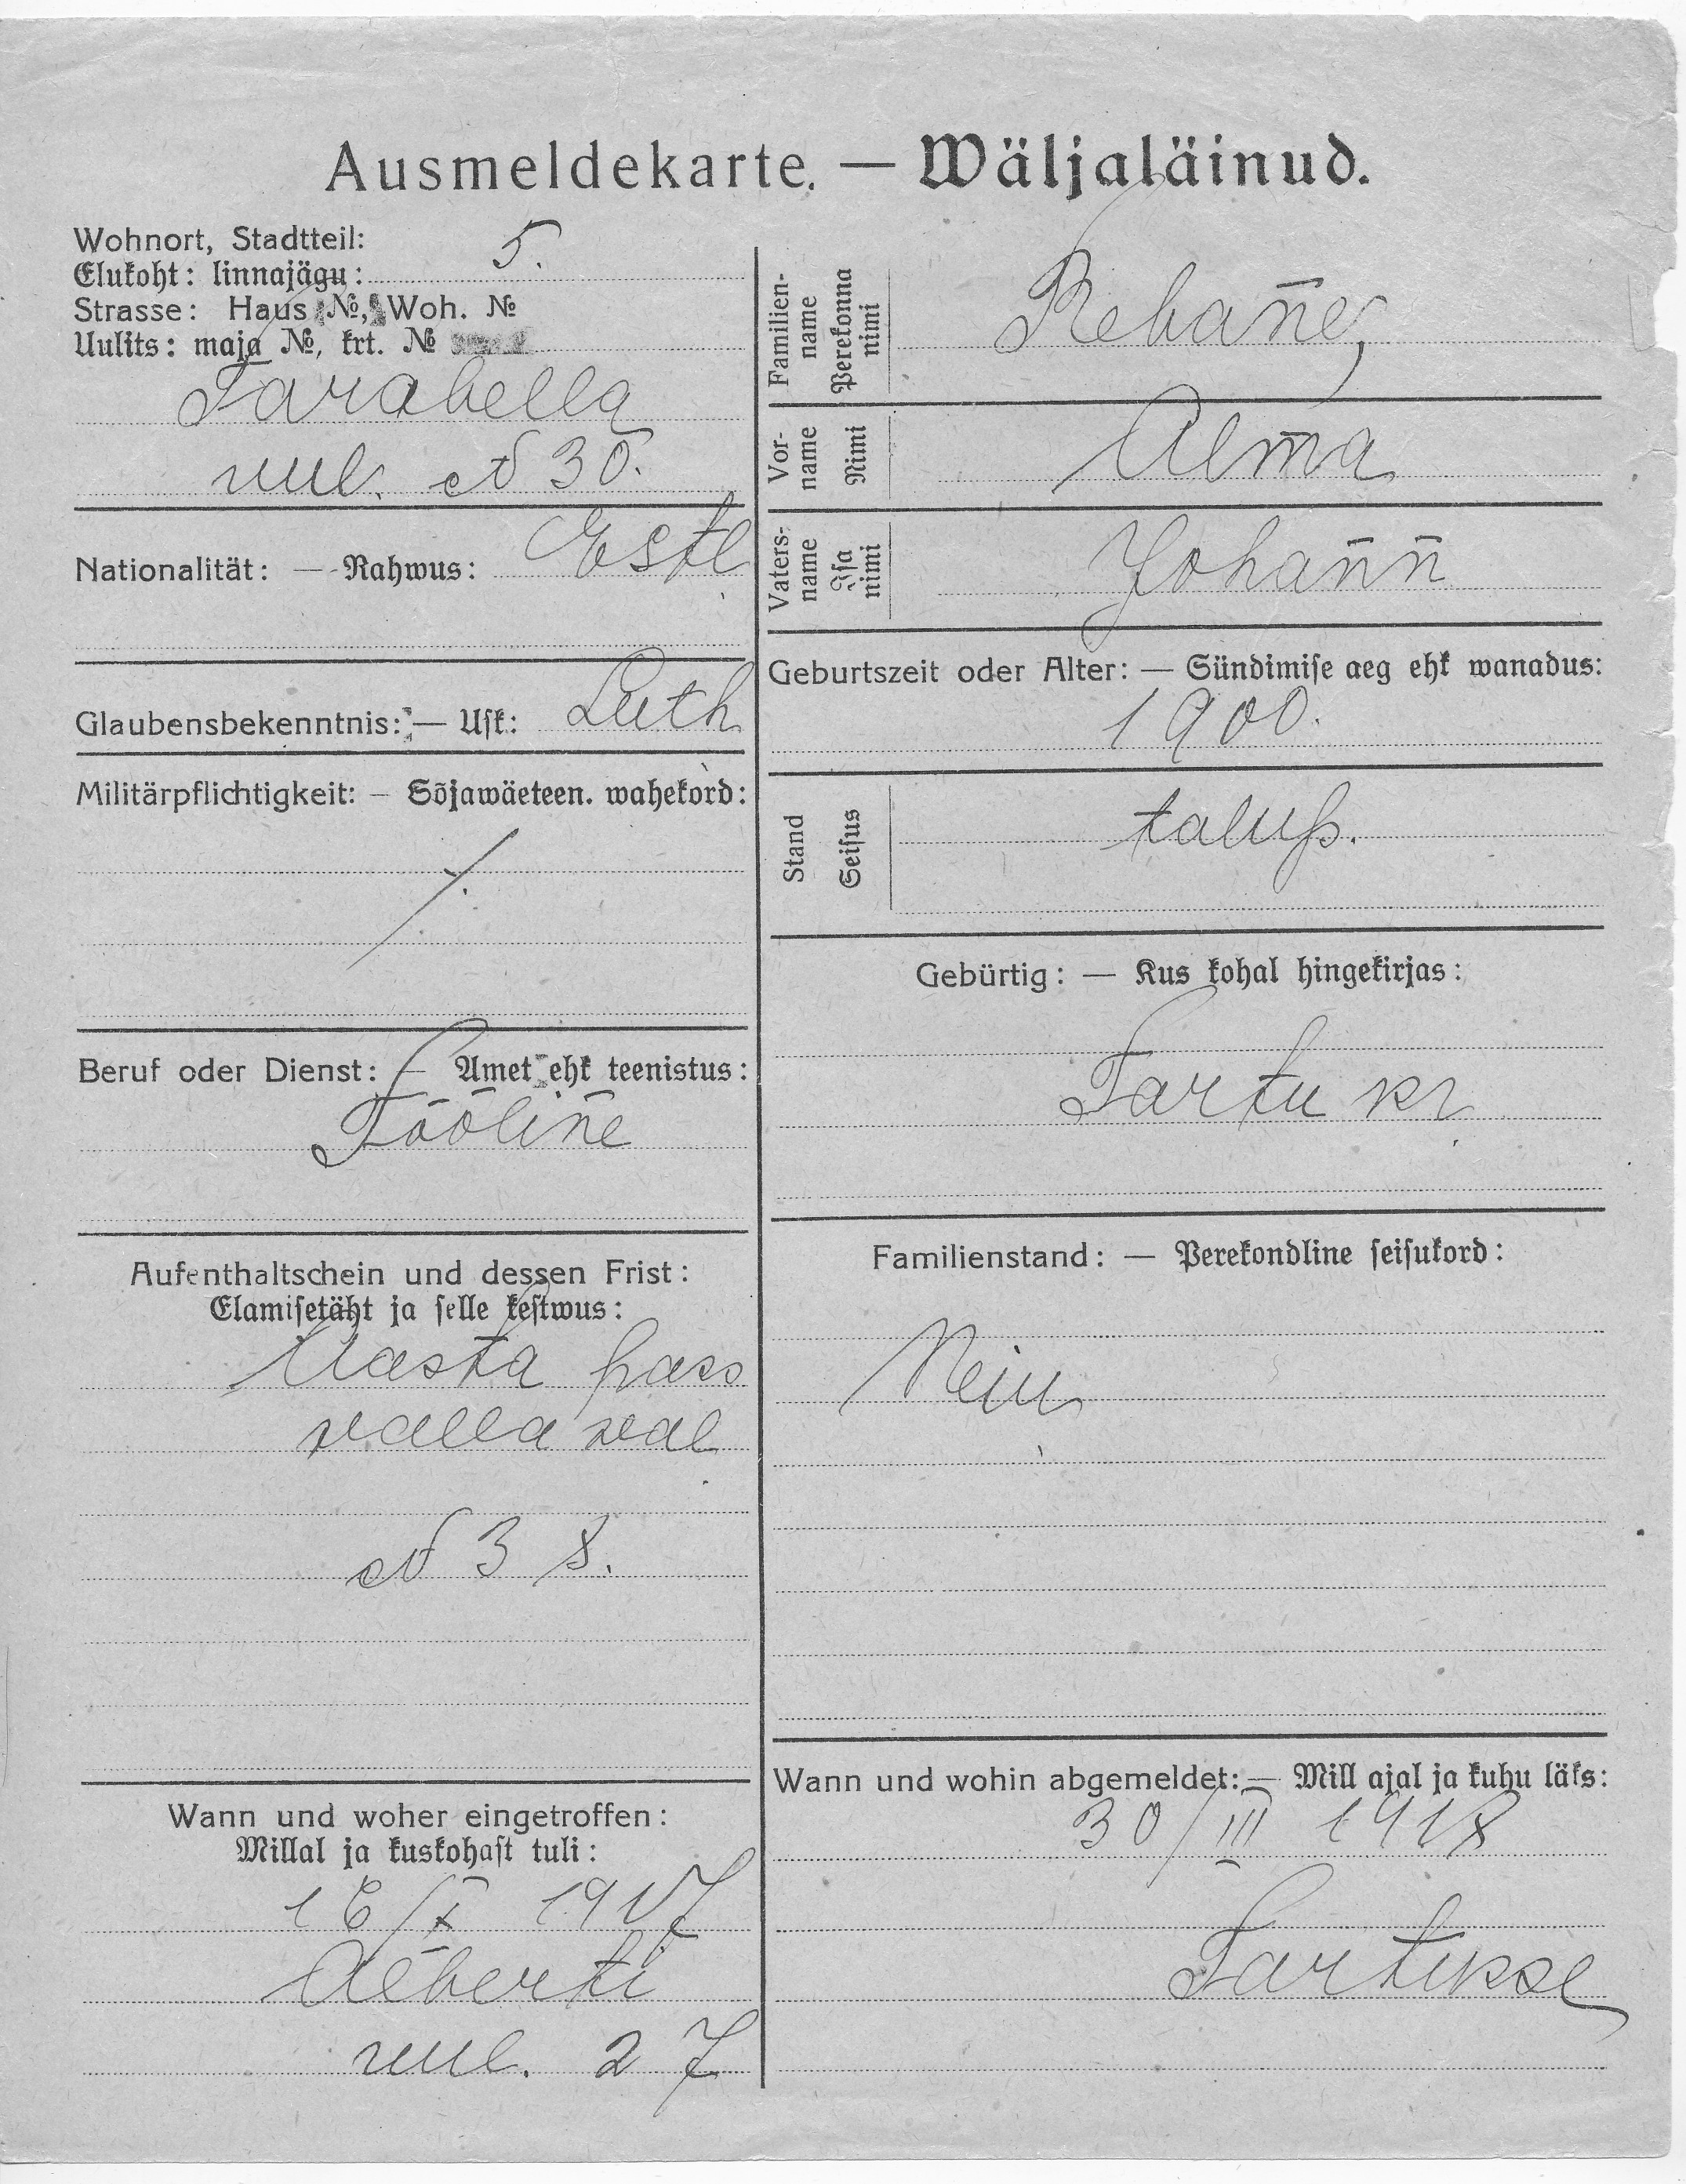 Ausmeldekarte. — Wäljaläinud.
Wohnort, Stadtteil: 5.
Elukoht: linnajägu:
Strasse: Haus №, Woh. №
Uulits: maja №, krt. №
Tarabella
uul. № 30.
Nationalität: — Rahwus: Estl
Glaubensbekenntnis: — Usk: Luth
Militärpflichtigkeit: — Sõjawäeteen. wahekord:
Beruf oder Dienst: — Amet ehk teenistus:
Tööline
Aufenthaltschein und dessen Frist:
Elamisetäht ja selle kestwus:
Uasta pass
valla val
№ 38.
Wann und woher eingetroffen:
Millal ja kuskohast tuli:
16/X 1917
Alberti
uul. 27
Familien-name Perekonna nimi Rebane,
Vor-name Nimi Alma
Vaters-name Isa nimi Johann
Geburtszeit oder Alter: — Sündimise aeg ehk wanadus:
1900.
Stand Seisus taluß.
Gebürtig: — Kus kohal hingekirjas:
Tartu kr
Familienstand: — Perekondline seisukord:
Neiu
Wann und wohin abgemeldet: — Mill ajal ja kuhu läks:
30/III 1918
Tartusse